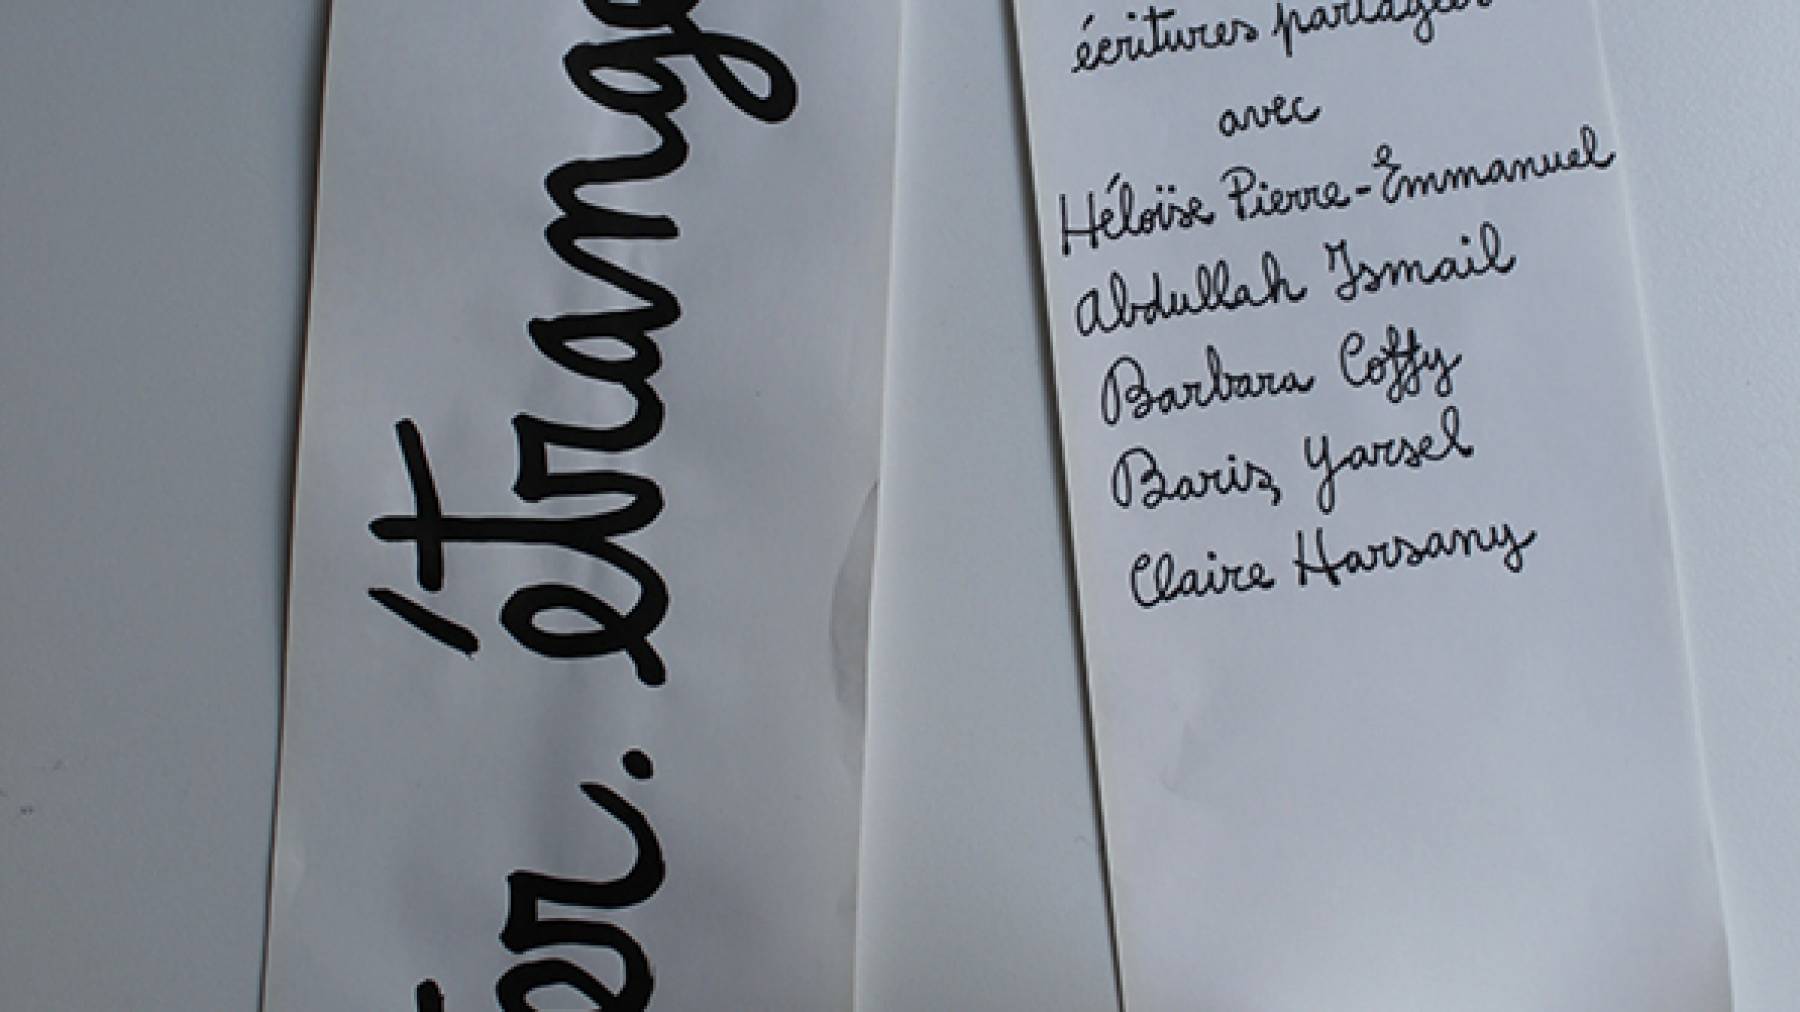 er. étrange
écritures partagées
avec
Héloïse Pierre-Emmanuel
Abdullah Ismail
Barbara Coffy
Bariş Yarsel
Claire Harsany